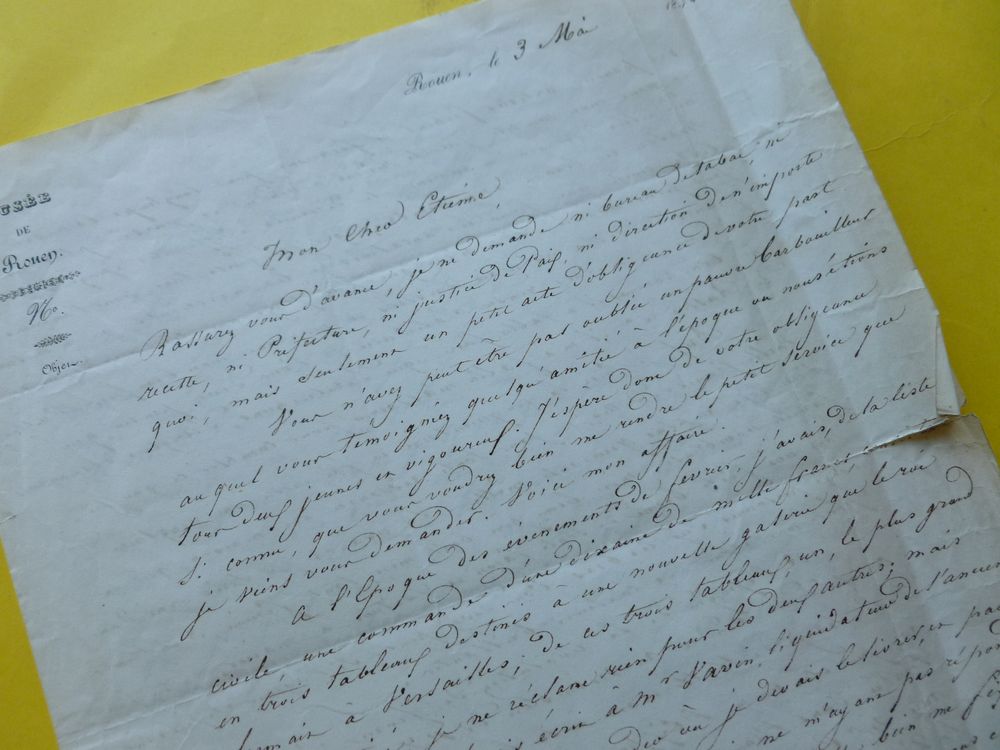 Rouen, le 3 Mai
USÉE
DE
Rouen.
No.
Objet
Mon Cher Etienne,
Rassurez vous d'avance, je ne demande ni bureau de tabac, ni
recette, ni Préfecture, ni justice de Paix, ni direction de n'importe
quoi, mais seulement un petit acte d'obligeance de votre part
Vous n'avez peut être pas oublié un pauvre barbouilleur
auquel vous témoigniez quelqu'amitié à l'époque ou nous étions
tous deux jeunes en vigoureux. J'espère donc de votre obligeance
si connue, que vous voudrez bien me rendre le petit service que
je viens vous demander. Voici mon affaire.
A l'Epoque des évenements de fevrier, j'avais, de la liste
civile, une commande d'une dixaine de mille francs,
en trois tableaux destinés à une nouvelle galerie que le roi
formait à Versailles; de ces trois tableaux, un, le plus grand
je ne réclame rien pour les deux autres; mais
écrit à Mr Vavin, liquidateur de l'ancien
où je devais le livrer, en
ne m'ayant pas
bien me